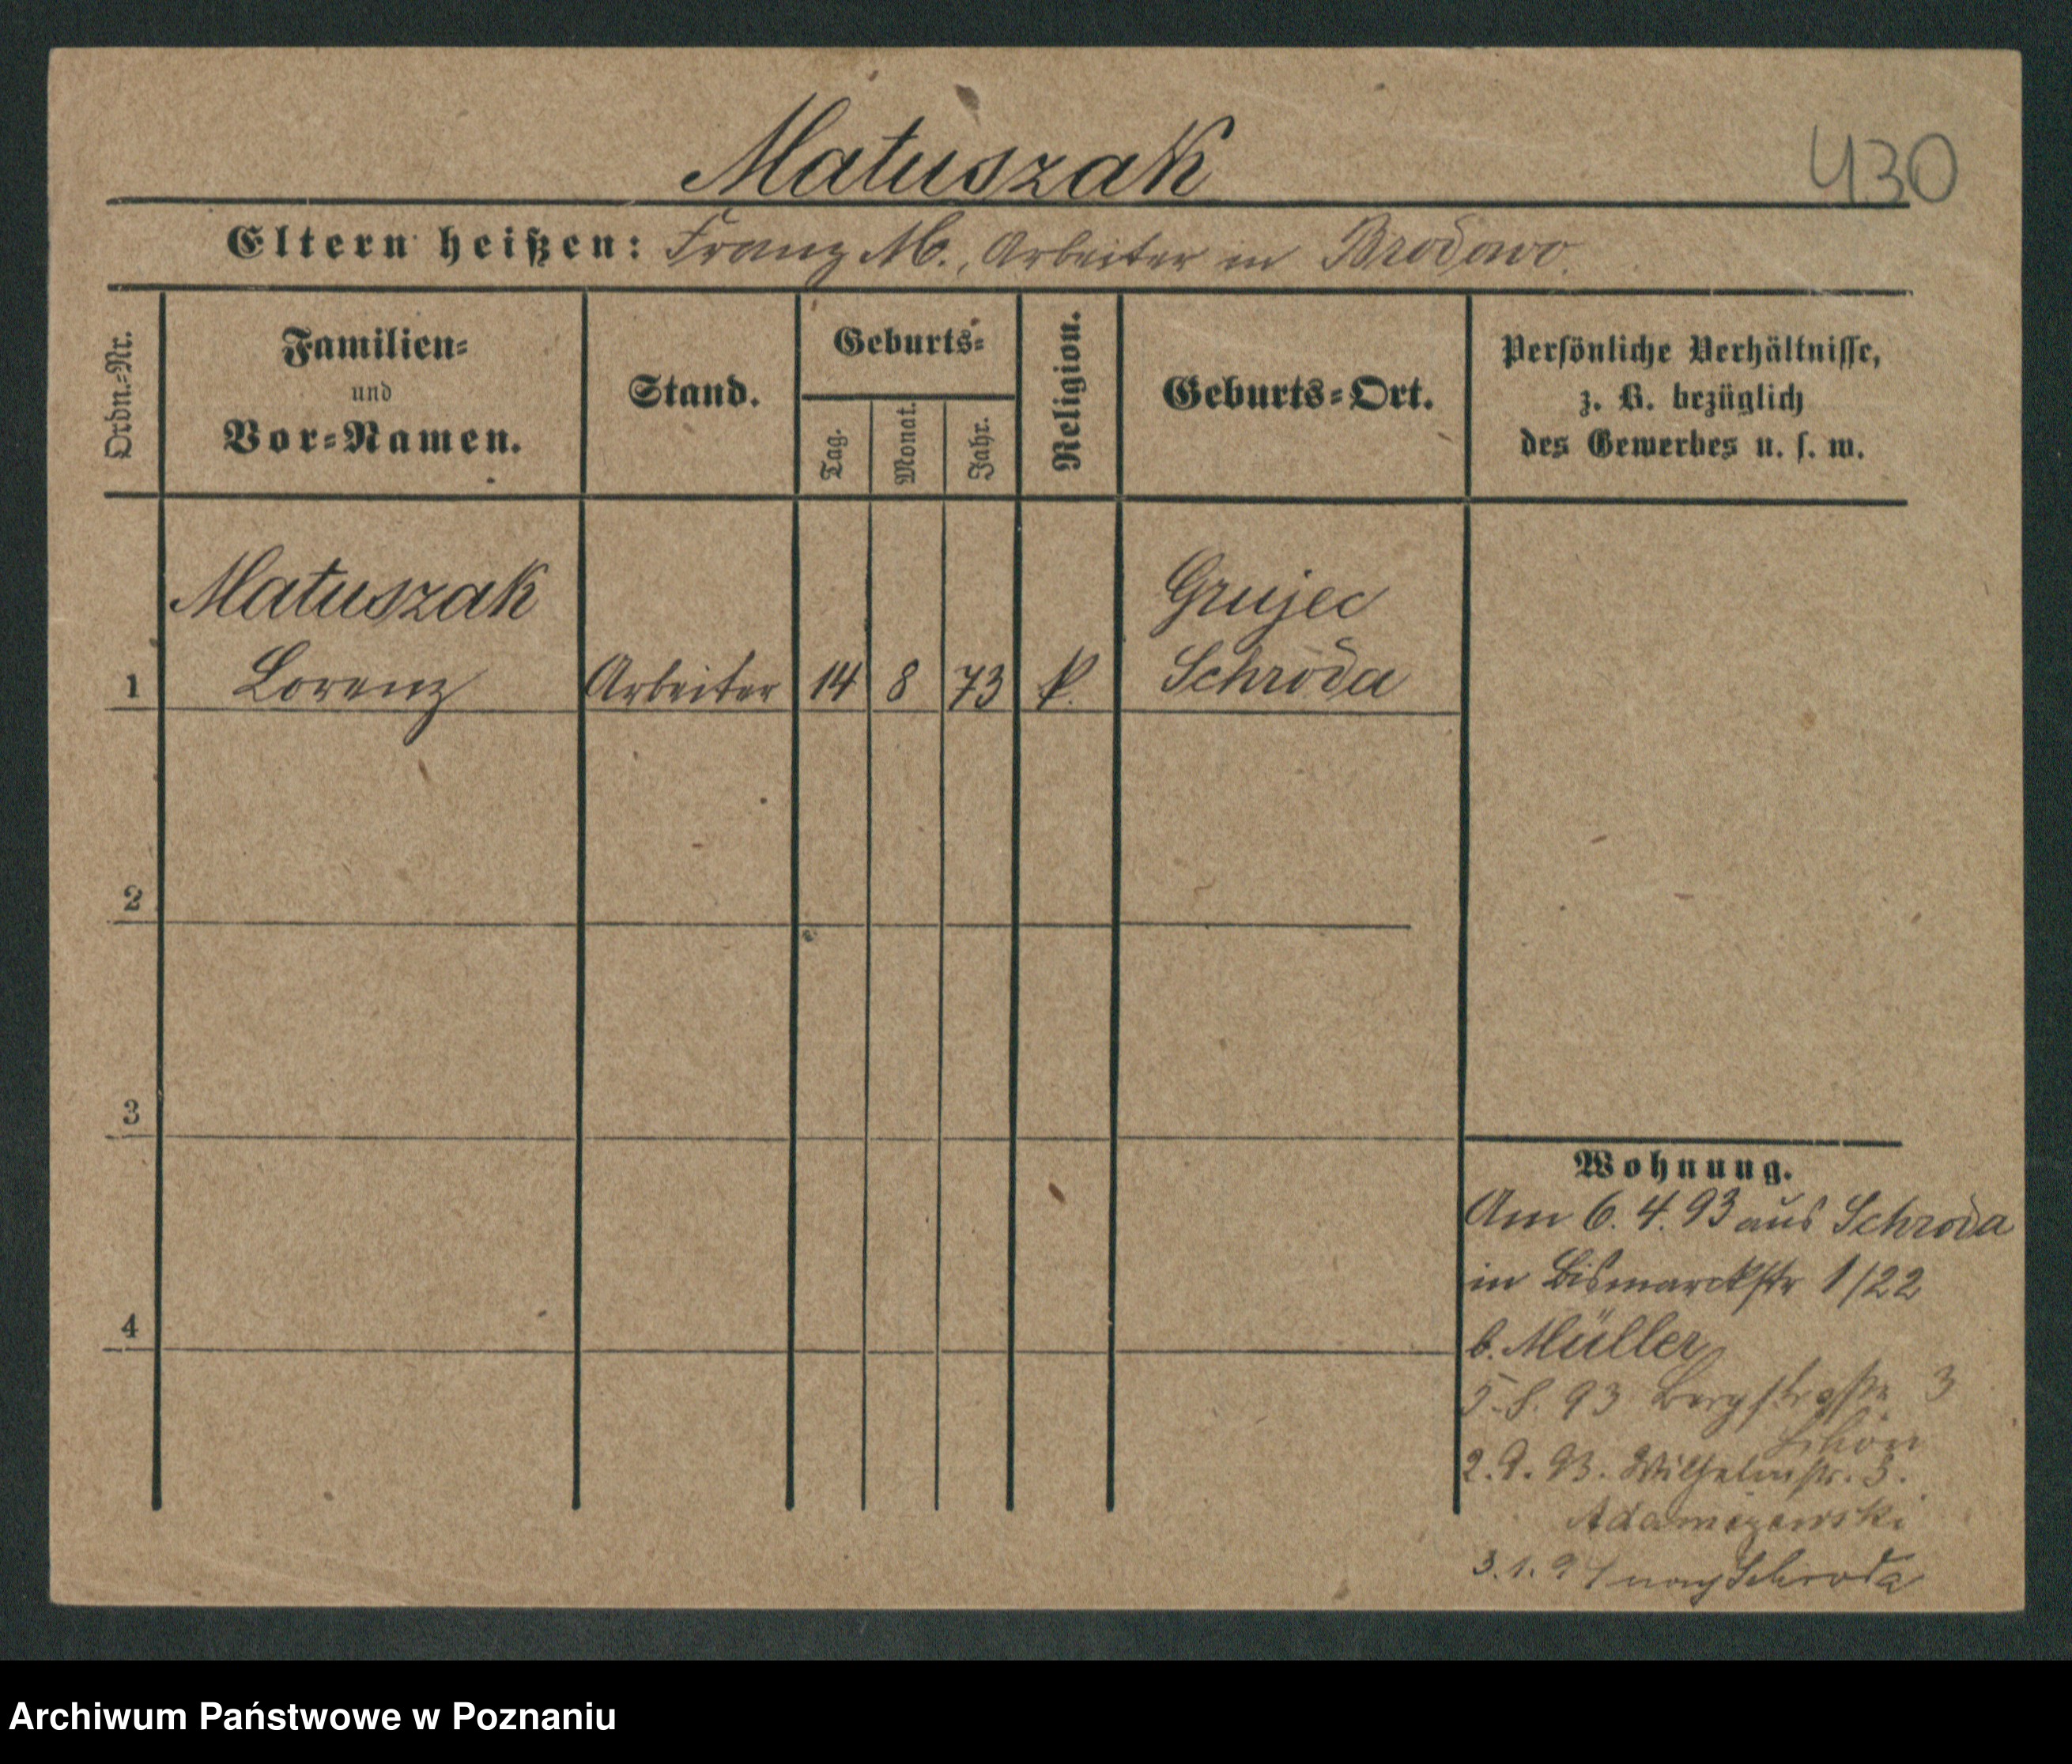 Matuszak
430
Eltern heißen: Franz M., Arbeiter in Brodowo.
Ordn.-Nr.
Familien-
und
Vor-Namen.
Stand.
Geburts-
Tag.
Monat.
Jahr.
Religion.
Geburts-Ort.
Persönliche Verhältnisse,
z. B. bezüglich
des Gewerbes u. s. w.
Matuszak Grujec
1 Lorenz Arbeiter 14 8 73 k. Schroda
2
3
4
Wohnung.
Am 6. 4. 93 aus Schroda
in Bismarckstr 1/22
b. Müller
5. 8. 93 Bergstraße 3
2. 9. 93. Wilhelmstr. 3.
Adamczewski
3. 1. 94 nach Schroda
Archiwum Państwowe w Poznaniu